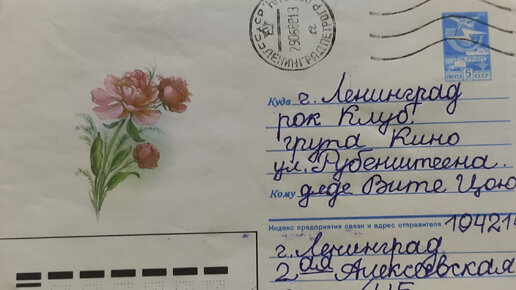 СССР
290688 13
а
ЛЕНИНГРАД
ПОЧТА 5 СССР
Куда г. Ленинград
рок Клуб.
група Кино
ул. Рубенштеена.
Кому деде Вите Цою
Индекс предприятия связи и адрес отправителя 19421
г. Ленинград
2ая Алексеевская